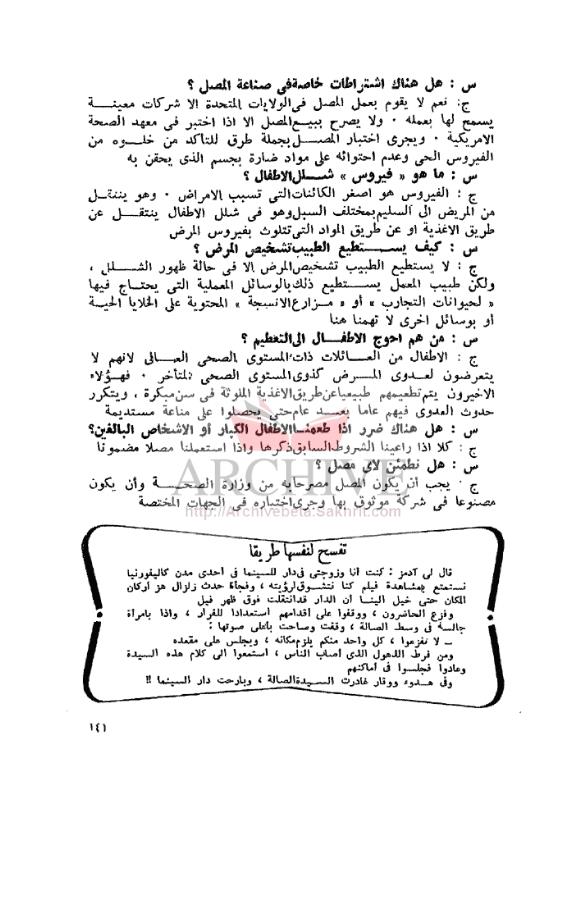 س : هل هناك اشتراطات خاصة فى صناعة المصل ؟
ج : نعم لا يقوم بعمل المصل فى الولايات المتحدة الا شركات معينة
يسمح لها بعمله ٠ ولا يصرح ببيع المصل الا اذا اختبر فى معهد الصحة
الامريكية ٠ ويجرى اختبار المصل بجملة طرق للتاكد من خلوه من
الفيروس الحى وعدم احتوائه على مواد ضارة بجسم الذى يحقن به
س : ما هو « فيروس » شلل الاطفال ؟
ج : الفيروس هو اصغر الكائنات التى تسبب الامراض ٠ وهو ينتقل
من المريض الى السليم بمختلف السبل وهو فى شلل الاطفال ينتقل عن
طريق الاغذية او عن طريق المواد التى تتلوث بفيروس المرض
س : كيف يستطيع الطبيب تشخيص المرض ؟
ج : لا يستطيع الطبيب تشخيص المرض الا فى حالة ظهور الشلل ،
ولكن طبيب المعمل يستطيع ذلك بالوسائل المعملية التى يحتاج فيها
« لحيوانات التجارب » أو « مزارع الانسجة » المحتوية على الخلايا الحية
أو بوسائل اخرى لا تهمنا هنا
س : من هم احوج الاطفال الى التطعيم ؟
ج : الاطفال من العائلات ذات المستوى الصحى العالى لانهم لا
يتعرضون لعدوى المرض كذوى المستوى الصحى المتأخر ٠ فهؤلاء
الاخيرون يتم تطعيمهم طبيعيا عن طريق الاغذية الملوثة فى سن مبكرة ، ويتكرر
حدوث العدوى فيهم عاما بعد عام حتى يحصلوا على مناعة مستديمة
س : هل هناك ضرر اذا طعمنا الاطفال الكبار أو الاشخاص البالغين؟
ج : كلا اذا راعينا الشروط السابق ذكرها واذا استعملنا مصلا مضمونا
س : هل نطمئن لاى مصل ؟
ج ٠ يجب أن يكون المصل مصرحا به من وزارة الصحة وأن يكون
مصنوعا فى شركة موثوق بها وجرى اختباره فى الجهات المختصة
ARCHIVE
http://Archivebeta.Sakhrit.com
تفسح لنفسها طريقا
قال لى آدمز : كنت أنا وزوجتى فى دار للسينما فى احدى مدن كاليفورنيا
نستمتع بمشاهدة فيلم كنا نتشوق لرؤيته ، وفجأة حدث زلزال هز أركان
المكان حتى خيل الينا أن الدار قد انتقلت فوق ظهر فيل
وفزع الحاضرون ، ووقفوا على أقدامهم استعدادا للفرار ، واذا بامرأة
جالسة فى وسط الصالة ، وقفت وصاحت بأعلى صوتها :
ـ لا تفزعوا ، كل واحد منكم يلزم مكانه ، ويجلس على مقعده
ومن فرط الذهول الذى أصاب الناس ، استمعوا الى كلام هذه السيدة
وعادوا فجلسوا فى أماكنهم
وفى هدوء ووقار غادرت السيدة الصالة ، وبارحت دار السينما !!
١٤١